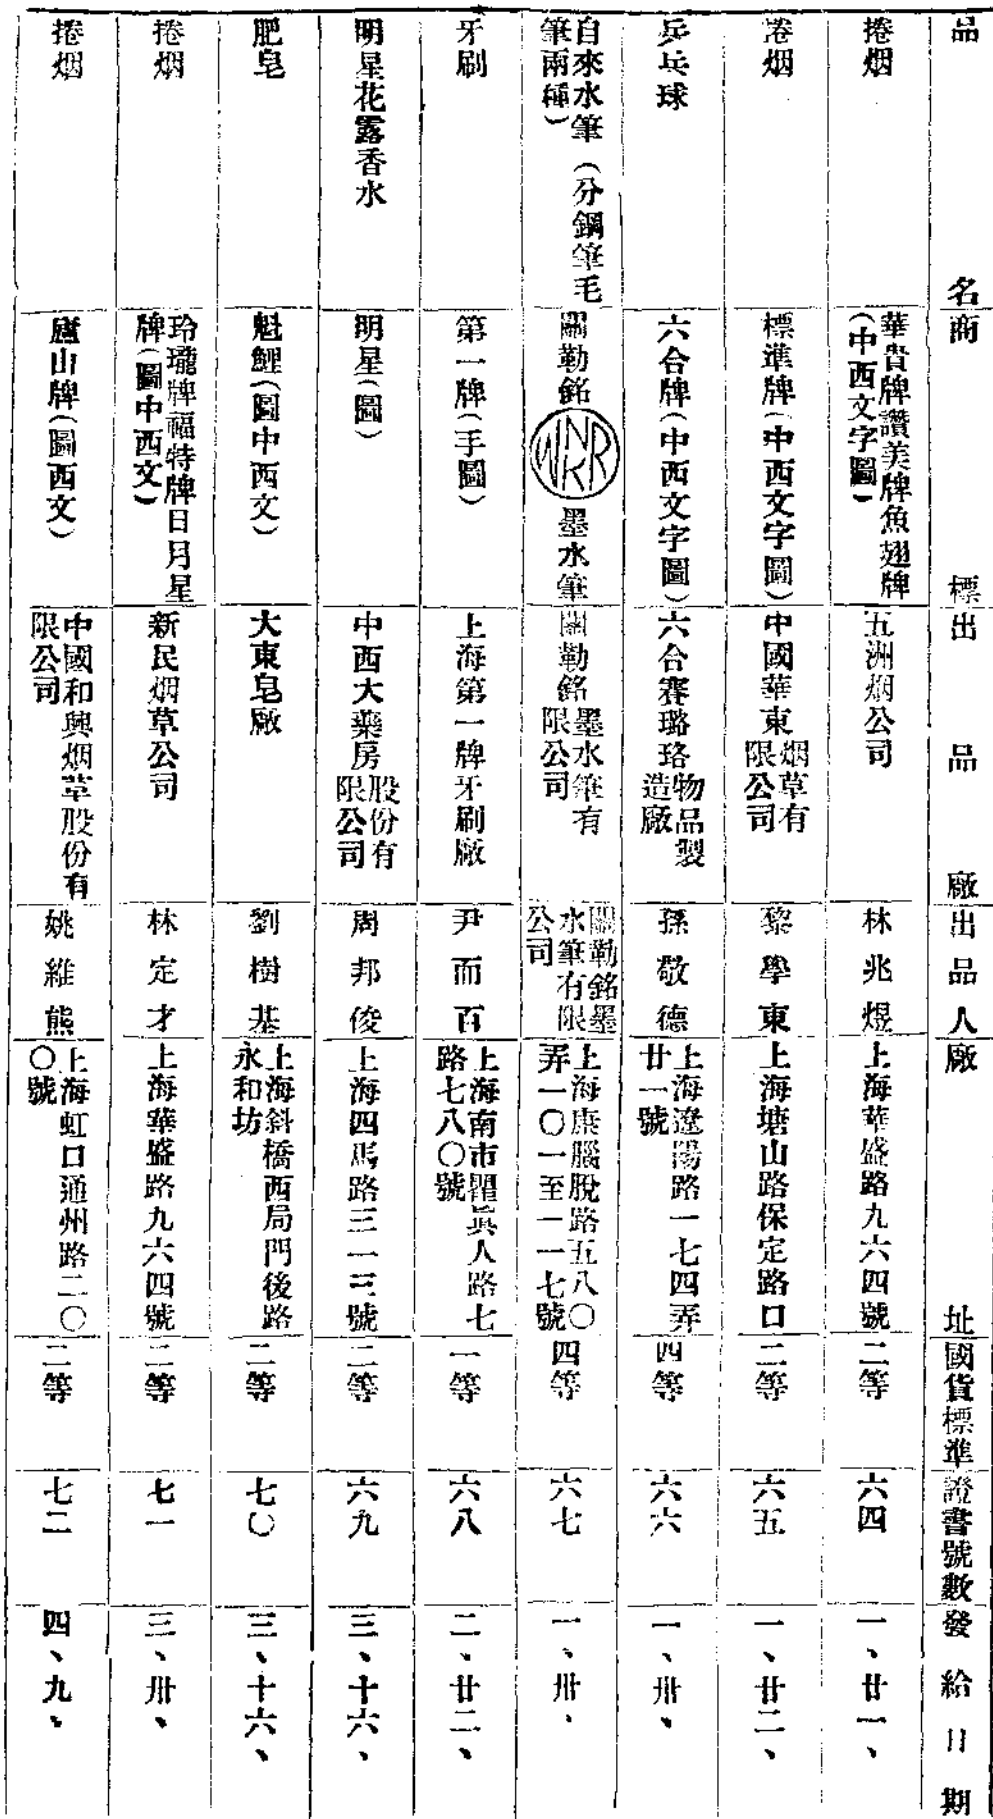 品名 商標 出品廠 出品人 廠址 國貨標準 證書號數 發給日期
捲烟 華貴牌讚美牌魚翅牌(中西文字圖) 五洲烟公司 林兆煜 上海華盛路九六四號 二等 六四 一、廿一、
捲烟 標準牌(中西文字圖) 中國華東烟草有限公司 黎學東 上海塘山路保定路口 二等 六五 一、廿二、
乒乓球 六合牌(中西文字圖) 六合賽璐珞物品製造廠 孫敬德 上海遼陽路一七四弄廿一號 四等 六六 一、卅、
自來水筆(分鋼筆毛筆兩種) 關勒銘 WNKR 墨水筆 關勒銘墨水筆有限公司 關勒銘墨水筆有限公司 上海康腦脫路五八〇弄一〇一至一一七號 四等 六七 一、卅、
牙刷 第一牌(手圖) 上海第一牌牙刷廠 尹而百 上海南市瞿眞人路七路七八〇號 一等 六八 二、廿二、
明星花露香水 明星(圖) 中西大藥房股份有限公司 周邦俊 上海四馬路三一三號 二等 六九 三、十六、
肥皂 魁鯉(圖中西文) 大東皂廠 劉樹基 上海斜橋西局門後路永和坊 二等 七〇 三、十六、
捲烟 玲瓏牌福特牌日月星牌(圖中西文) 新民烟草公司 林定才 上海華盛路九六四號 二等 七一 三、卅、
捲烟 廬山牌(圖西文) 中國和興烟草股份有限公司 姚維熊 上海虹口通州路二〇〇號 二等 七二 四、九、